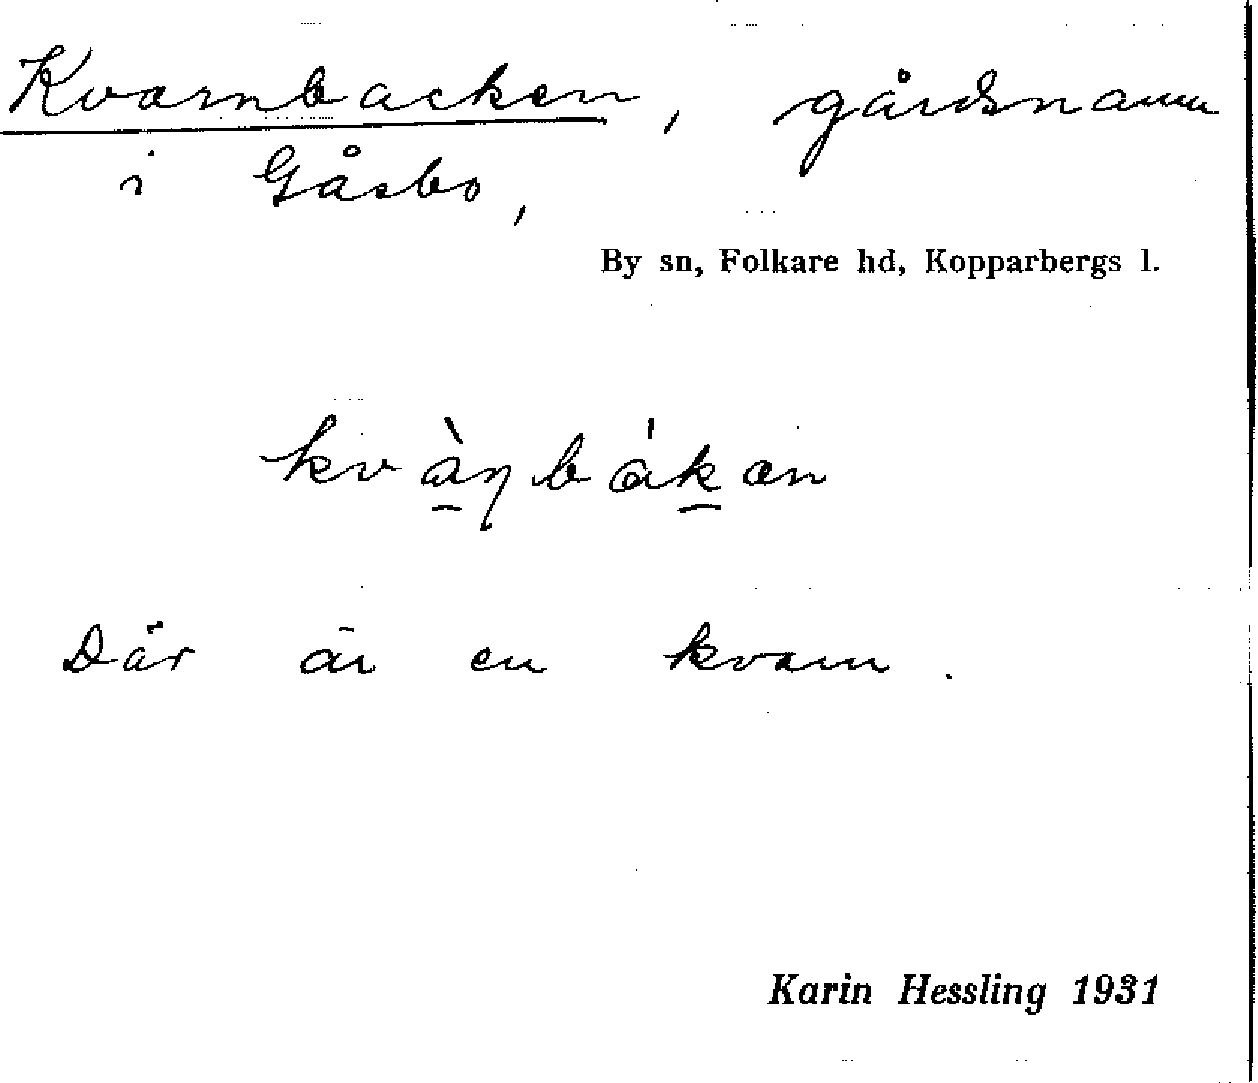 Kvarnbacken, gårdsnamn
i Gåsbo,
By sn, Folkare hd, Kopparbergs l.
kvàṇbákan
Där är en kvarn.
Karin Hessling 1931